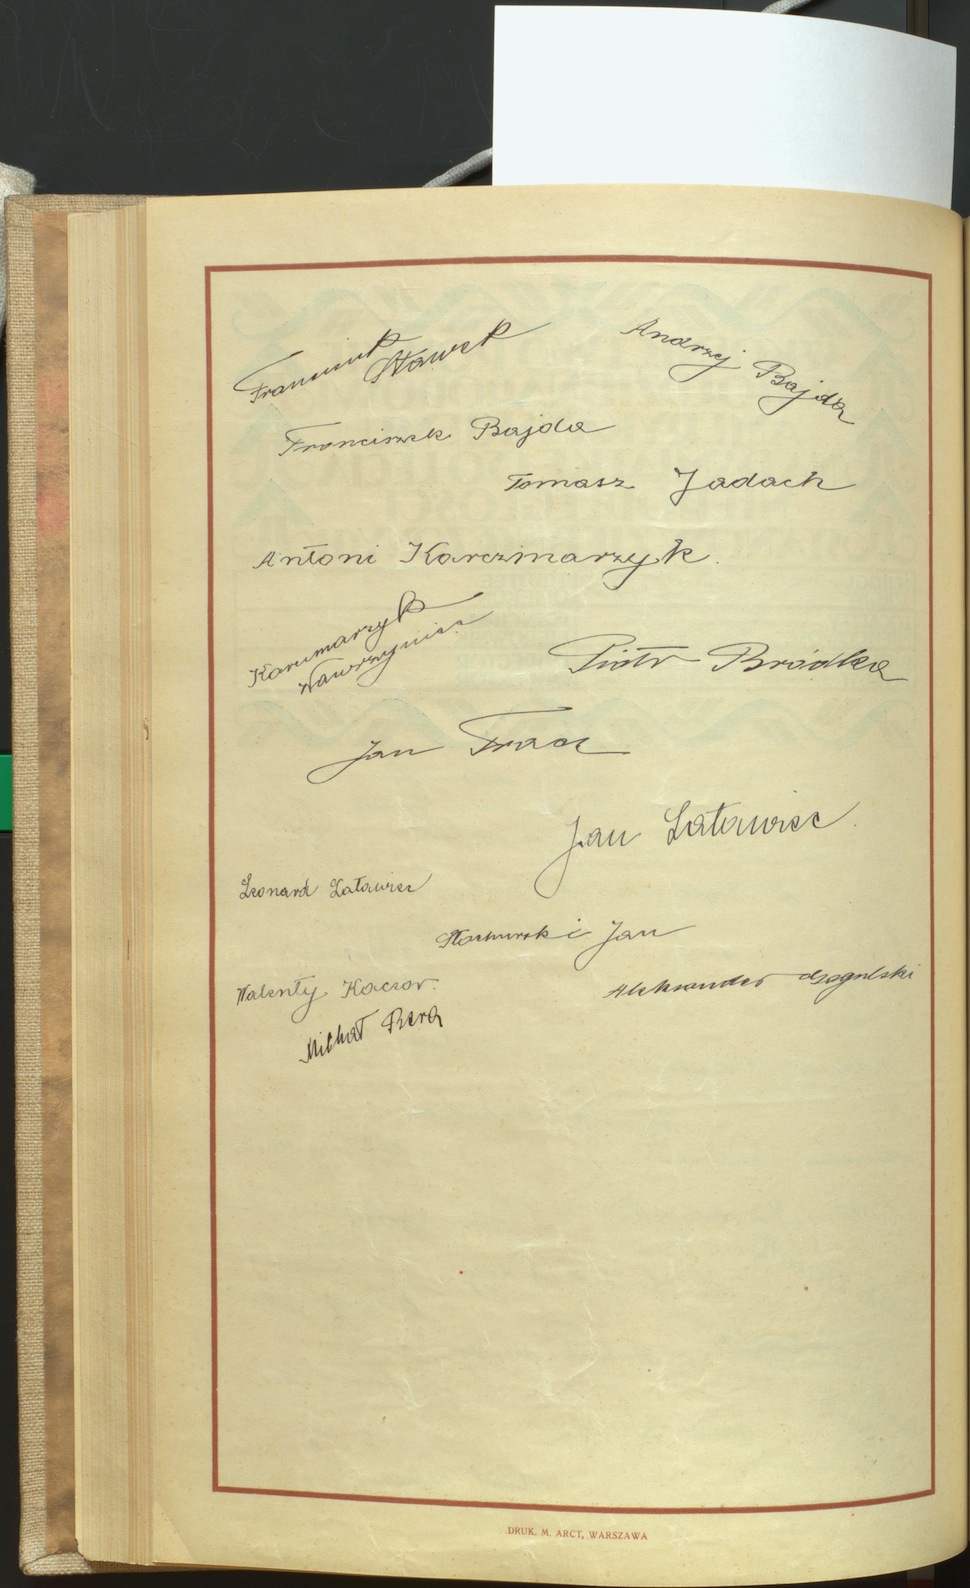 Franciszek
Stawek
Andrzej Bajda
Franciszek Bajda
Tomasz Jadach
Antoni Karczmarzyk.
Karczmarzyk
Wawrzyniec
Piotr Bródka
Jan Fracz
Jan Latawiec.
Leonard Latawiec
Jan
Walenty Kaczor.
Aleksander
Michał Bera
DRUK. M. ARCT, WARSZAWA